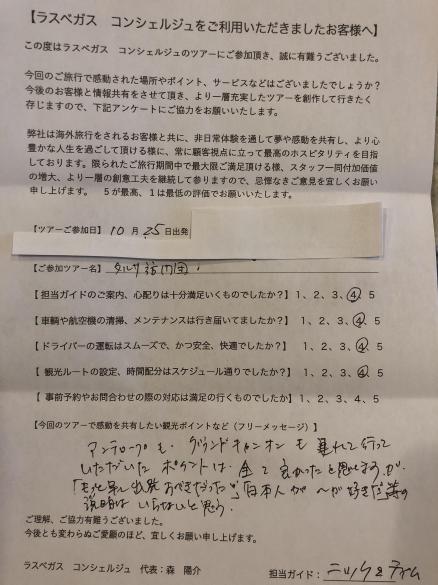 【ラスベガス　コンシェルジュをご利用いただきましたお客様へ】
この度はラスベガス　コンシェルジュのツアーにご参加頂き、誠に有難うございました。
今回のご旅行で感動された場所やポイント、サービスなどはございましたでしょうか？
今後のお客様と情報共有をさせて頂き、より一層充実したツアーを創作して行きたく
存じますので、下記アンケートにご協力をお願いいたします。
弊社は海外旅行をされるお客様と共に、非日常体験を通して夢や感動を共有し、より心
豊かな人生を過ごして頂ける様に、常に顧客視点に立って最高のホスピタリティを目指
しております。限られたご旅行期間中で最大限ご満足頂ける様、スタッフ一同付加価値
の増大、より一層の創意工夫を継続して参りますので、忌憚なきご意見を宜しくお願い
申し上げます。　５が最高、１は最低の評価でお願いいたします。
【ツアーご参加日】 10 月 25 日出発
【ご参加ツアー名】
【 担当ガイドのご案内、心配りは十分満足いくものでしたか？】 1、2、3、4、5
【 車輌や航空機の清掃、メンテナンスは行き届いてましたか？】 1、2、3、4、5
【 ドライバーの運転はスムーズで、かつ安全、快適でしたか？】 1、2、3、4、5
【 観光ルートの設定、時間配分はスケジュール通りでしたか？】 1、2、3、4、5
【 事前予約やお問合わせの際の対応は満足の行くものでしたか】 1、2、3、4、5
【今回のツアーで感動を共有したい観光ポイントなど（フリーメッセージ）】
アンテロープも、グランドキャニオンも連れて行って
いただいた ポイントは、全て良かったと思いますが、
「もっと早く出発すべきだった」「日本人が〜が好きだ」等の
説明は いらないと思う。
ご理解、ご協力有難うございました。
今後とも変わらぬご愛顧のほど、宜しくお願い申し上げます。
ラスベガス　コンシェルジュ　代表：森　陽介
担当ガイド：ニック &